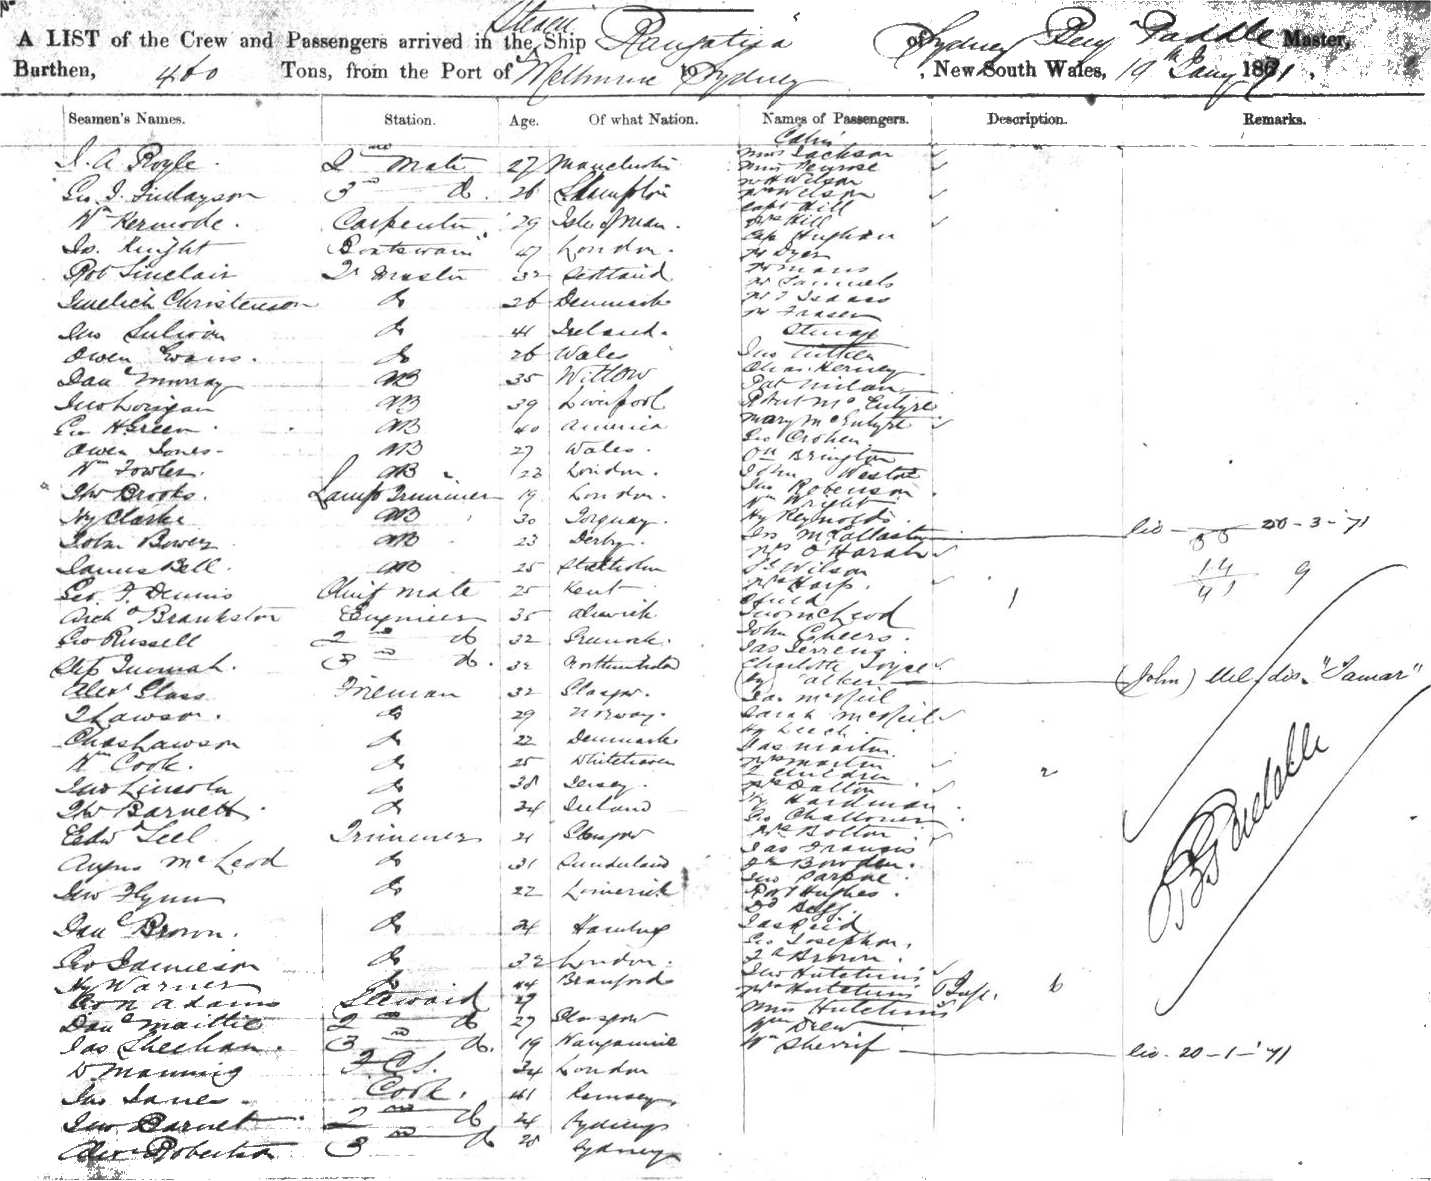 A LIST of the Crew and Passengers arrived in the Steam Ship "Rangatira" of Sydney Benj Paddle Master,
Burthen, 460 Tons, from the Port of Melbourne to Sydney, New South Wales, 19th Jany 1871.
Seamen's Names. Station. Age. Of what Nation. Names of Passengers. Description. Remarks.
J. A Royle. 2nd Mate 27 Manchester
Geo J. Findlayson 3rd do. 26
Wm Kermode. Carpenter 29 Isle of Man.
Js. Knight Boatswain 47 London.
Rob Sinclair Qr Master 32 Scotland
Christenson do 26 Denmark
Jno Sulivan do 41 Ireland.
Owen Evans. do 26 Wales
Danl Murray AB 35 Witlow
Jno Lonigan AB 39 Liverpool
Geo H Green. AB 40 America
Owen Jones. AB 27 Wales.
Wm Fowler. AB 22 London.
Thos Brooks. Lamp Trimmer 19 London.
Hy Clarke AB 30 Torquay.
John Bower AB 23 Derby.
James Bell. AB 25 Stockholm
Geo F Dennis Chief mate 25 Kent
Archd Brankston Engineer 35 Alnwick
Geo Russell 2nd do 32 Greenock.
Step Tuomah. 3rd do. 32 Northumberland
Alexr Glass Fireman 32 Glasgow.
T Lawson. do 29 Norway.
Chas Lawson do 22 Denmark
Wm Cook. do 25 Whitehaven
Jno Lincoln do 38 Jersey.
Thos Barnett do 24 Ireland
Edwd Teel Trimmer 21 Glasgow
Angus McLeod do 31 Sunderland
Jno Flynn do 22 Limerick
Danl Brown. do 24 Hamburg
Geo Jamieson do 32 London.
Hy Warner do 44 Branford
Geo N Adams Steward 27
Danl Maittie 2nd do 27 Glasgow
Jas Sheehan. 3rd do. 19
D Manning F.C.S. 24 London
Jno Janes Cook. 41 Ramsey,
Jno Barnet 2nd do 24 Sydney
Alexr Robertson 3rd do 20 Sydney
Cabin
Miss Jackson
Miss Penrose
Mr H Wilson
Mrs Wilson
Capt Hill
Mrs Hill
Cap Hughan
Mr Dyer
Mr Mans
Mr Samuels
Mr J Isaacs
Mr Fraser
Steerage
Jno Aitken
Chas. Herney
Pat Milan
Robert McEntyre
Mary McEntyre
Geo Crohen.
On Brington
John Weston
Jno Robenson
Wm Wright
Hy Reynolds.
Js McCallaster lic 20-3-'71
Mrs O'Harah
Js Wilson
Mrs Harp.
Child 1
McLeod
John Cheers.
Jas Gerreng
Charlotte Joyce
Hy Talbert (John) Mel dis. "Tamar"
Jas McNeil
Sarah McNeil
Hy Leech.
Jas Martin
Mrs Martin
2 Children 2
Mrs Dalton
Hy Hardman
Geo Challoner
Mrs Bolton
Jas Francis
Jno Bowden.
Jno
Rob Hughes.
Jas Reid
Geo Josephson.
Jn Brown.
Jno Hutchins
Mrs Hutchins 6
Miss Hutchins
Wm Drew
Wm Sherrif lic. 20-1-'71
14
41
9
B Paddle